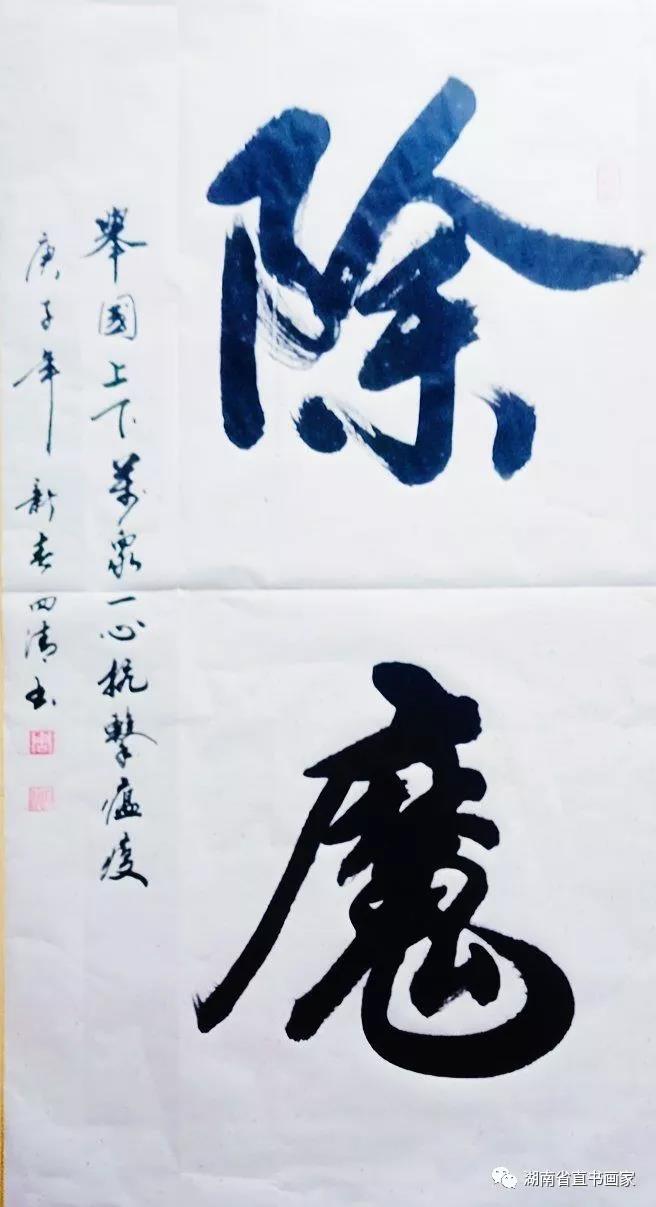 除魔
舉國上下萬衆一心抗擊瘟疫
庚子年新春四清书
湖南省直书画家